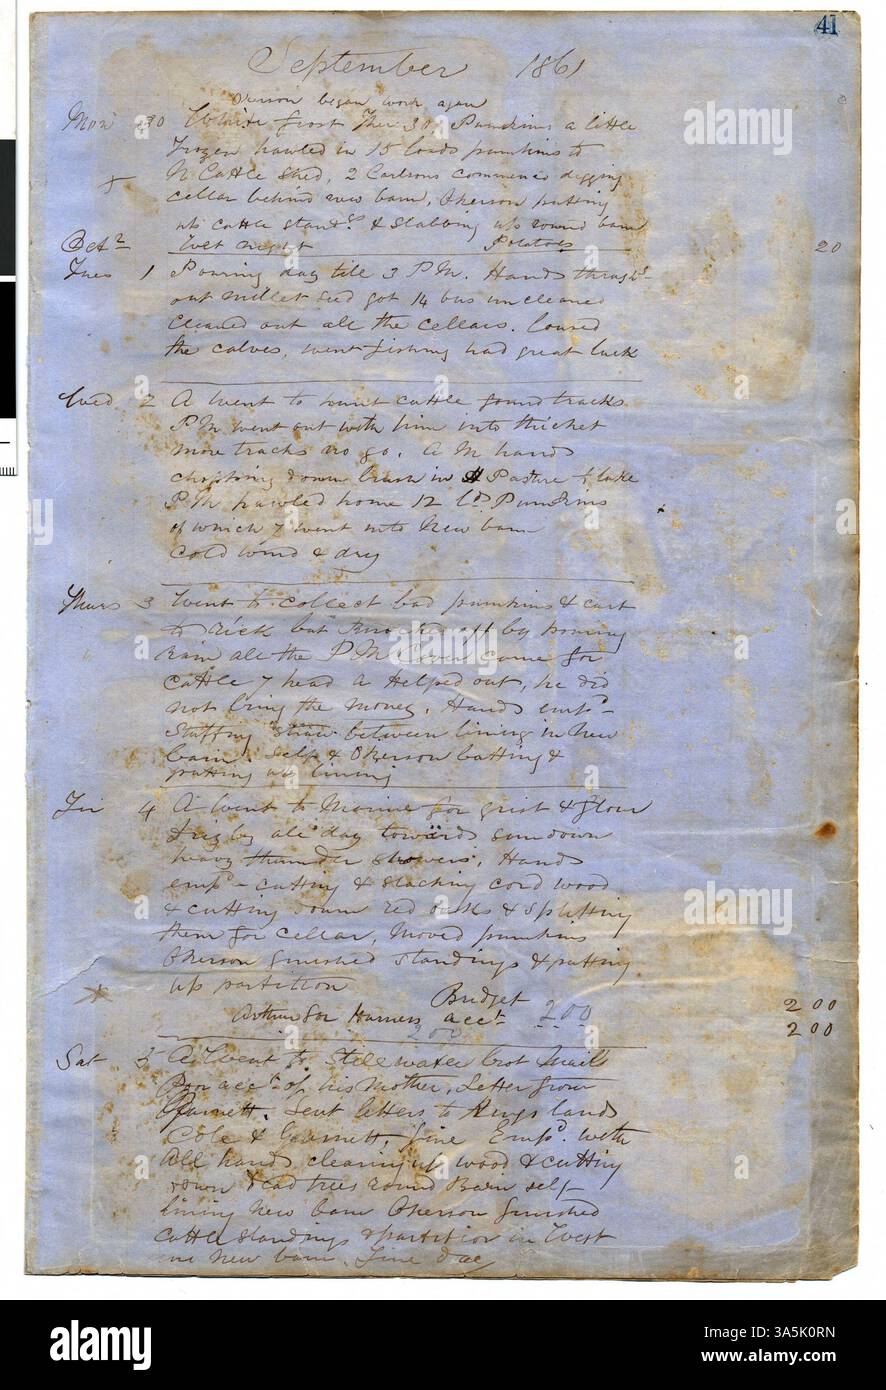 41
September 1861
Okerson began work again
Mon 30 White frost Ther 30. Pumkins a little
frozen hawled in 15 loads pumkins to
N Cattle Shed, 2 Carlsons commenced digging
cellar behind new barn. Okerson putting
up cattle stand.gs & Slabbing up round barn
Oct.r Wet night Potatoes 20
Tues 1 Pouring day till 3 P.M. Hands thrash.g
out millet seed got 14 bus uncleaned
cleaned out all the cellars. Loused
the calves, went fishing had great luck
Wed 2 A went to hunt cattle found tracks
P M went out with him into thicket
more tracks no go. A M hands
chopping down brush in H Pasture & lake
P M hawled home 12 l.ds Pumkins
of which 7 went into New barn
cold wind & dry
Thurs 3 Went to collect bad pumkins & cart
to rick but knocked off by pouring
rain all the P M. Coven came for
cattle 7 head A Helped out, he did
not bring the money. Hands emp.d
stuffing straw between lining in New
barn. Self & Okerson batting &
putting up lining
Fri 4 A Went to Marine for grist & flour
Drizly all day towards sundown
heavy thunder showers. Hands
emp.d cutting & stacking cord wood
& cutting down red oaks & splitting
them for cellar, moved pumkins
Okerson finished standings & putting
up partition
Budget 2 00
Arthur for Harness acc.t 2.00 2 00
200
Sat 5 A Went to Stillwater brot Mails
on acc.t of his Mother, Letter from
Garnett. Sent letters to Kingslands
Cole & Garnett. Fine Emp.d with
all hands clearing up wood & cutting
down dead trees round Barn self
lining New barn Okerson finished
cattle standings & partition in West
new barn. Fine day
alamy
Image ID: 3A5K0RN
www.alamy.com